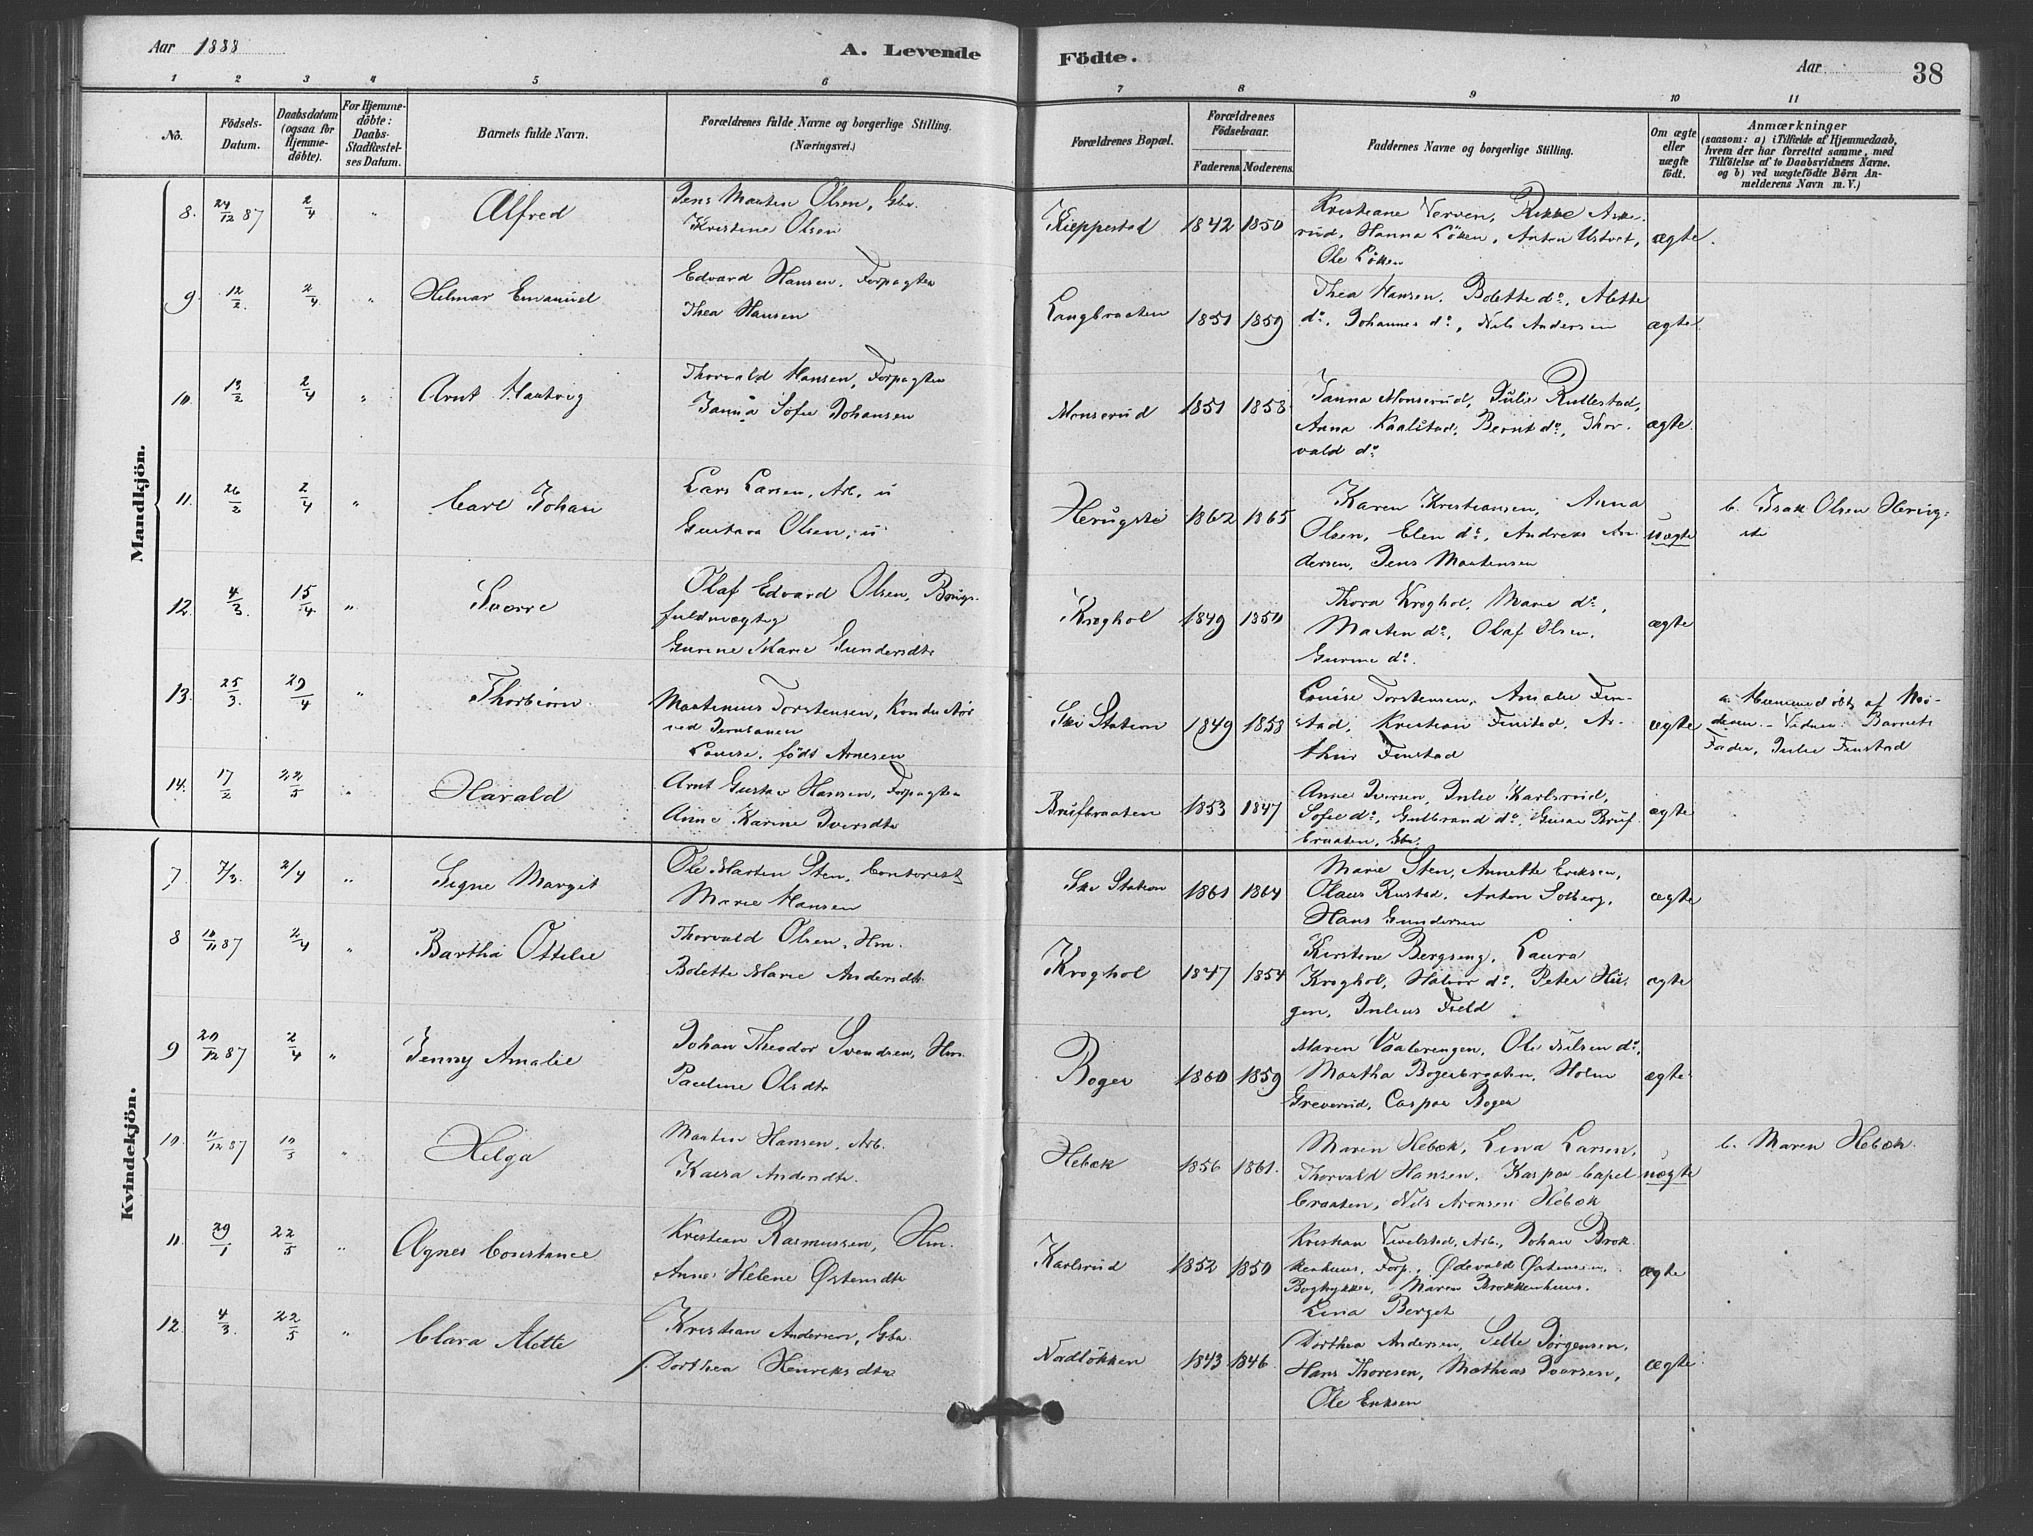 Aar 1888
A. Levende
Födte.
Aar
38
1 2 3 4 5 6 7 8 9 10 11
No.
Födsels-
Datum.
Daabsdatum
(ogsaa for
Hjemme-
döbte).
For Hjemme-
döbte:
Daabs-
Stadfæstel-
ses Datum.
Barnets fulde Navn.
Forældrenes fulde Navne og borgerlige Stilling.
(Næringsvei.)
Forældrenes Bopæl.
Forældrenes
Födselsaar.
Faderens. Moderens.
Faddernes Navne og borgerlige Stilling.
Om ægte
eller
uægte
födt.
Anmærkninger
(saasom: a) i Tilfælde af Hjemmedaab,
hvem der har forrettet samme, med
Tilföielse af to Daabsvidners Navne.
og b) ved uægtefödte Börn An-
melderens Navn m. V.)
Mandkjön.
8. 24/12 87 2/4 " Alfred
Jens Martin Olsen, Gbr.
Kristine Olsen
Kieppestad 1842 1850
Kristiane Verven, Rikke Aske-
rud, Hanna Löken, Anton Ustvet,
Ole Löken
ægte.
9. 12/2. 2/4 " Hilmar Emanuel
Edvard Hansen, Forpagter
Thea Hansen
Langbraaten 1851 1859
Thea Hansen, Bolette do, Alette
do, Johannes do, Nils Andersen
ægte
10. 13/2 2/4 " Arnt Hartvig
Thorvald Hansen, Forpagter
Janna Sofie Johansen
Monserud 1851 1858
Janna Monserud, Julie Rullestad,
Anna Kaalstad, Bernt do, Thor-
vald do
ægte.
11. 26/2 2/4 " Carl Johan
Lars Larsen, Arb, u
Gustava Olsen, u
1862 1865
Karen Kristiansen, Anna
Olsen, Elen do, Andreas An-
dersen, Jens Martensen
uægte
b. Isak Olsen
12. 4/3. 15/4 " Sverre
Olaf Edvard Olsen, Brugs-
fuldmægtig
Gurine Marie Gundersdtr
Kroghol 1849 1850
Thora Kroghol, Marie do,
Marten do, Olaf Olsen,
Gurine do.
ægte
13. 25/3. 29/4 " Thorbiörn
Martinius Torstensen, Konduktör
ved Jernbanen
Louise, födt Arnesen
Ski Station 1849 1858
Louise Torstensen, Amalie Fin-
stad, Kristian Finstad, Ar-
thur Finstad
ægte
a. Hiemmedöbt af Mo-
deren. - Vidner: Barnets
Fader, Julie Finstad
14. 17/2 22/5 " Harald
Arnt Gustav Hansen, Forpagter
Anne Karine Iversdtr
Brufbraaten 1853 1847
Anne Iversen, Julie Karlsrud,
Sofie do, Gulbrand do, Gusta Bruf-
braaten, Gbr.
ægte
Kvindekjön.
7 7/3. 2/4 " Signe Margit
Ole Martin Sten, Contorist
Marie Hansen
Ski Station 1861 1864
Marie Sten, Annette Eriksen,
Olaus Rustad, Anton Solberg,
Hans Gundersen
ægte
8 10/11 87 2/4 " Bartha Ottilie
Thorvald Olsen, Hm.
Bolette Marie Andersdtr.
Kroghol 1847 1854
Kirstine Bergseng, Laura
Kroghol, Halvor do, Peter Hau-
gen, Julius Field
ægte
9 20/12 87 2/4 " Jenny Amalie
Johan Theodor Svendsen, Hm.
Pauline Olsdtr
Boger 1860 1859
Maren Vaalerengen, Ole Nilsen do,
Martha Bogerbraaten, Holm
Greverud, Caspar Boger
ægte
10. 11/12 87 10/5 " Helga
Martin Hansen, Arb.
Kaisa Andersdtr.
Hebæk 1856 1861.
Maren Hebæk, Lina Larsen,
Thorvald Hansen, Kaspar Capel-
braaten, Nils Aronsen Hebæk
uægte
b. Maren Hebæk.
11. 29/1 22/5 " Agnes Constance
Kristian Rasmussen, Hm.
Anne Helene Østensdtr
Karlsrud 1852 1850
Kristian Vevelstad, Arb., Johan Brok-
kenhuus, Forp., Ødevald Østensen,
Bogtrykker, Maren Brokkenhuus,
Lina Berget
ægte
12. 4/3. 22/5 " Clara Alette
Kristian Andersen, Gbr.
Dorthea Henriksdtr
Nordlökken 1843 1846
Dorthea Andersen, Sille Jörgensen,
Hans Thoresen, Mathias Iversen,
Ole Eriksen
ægte